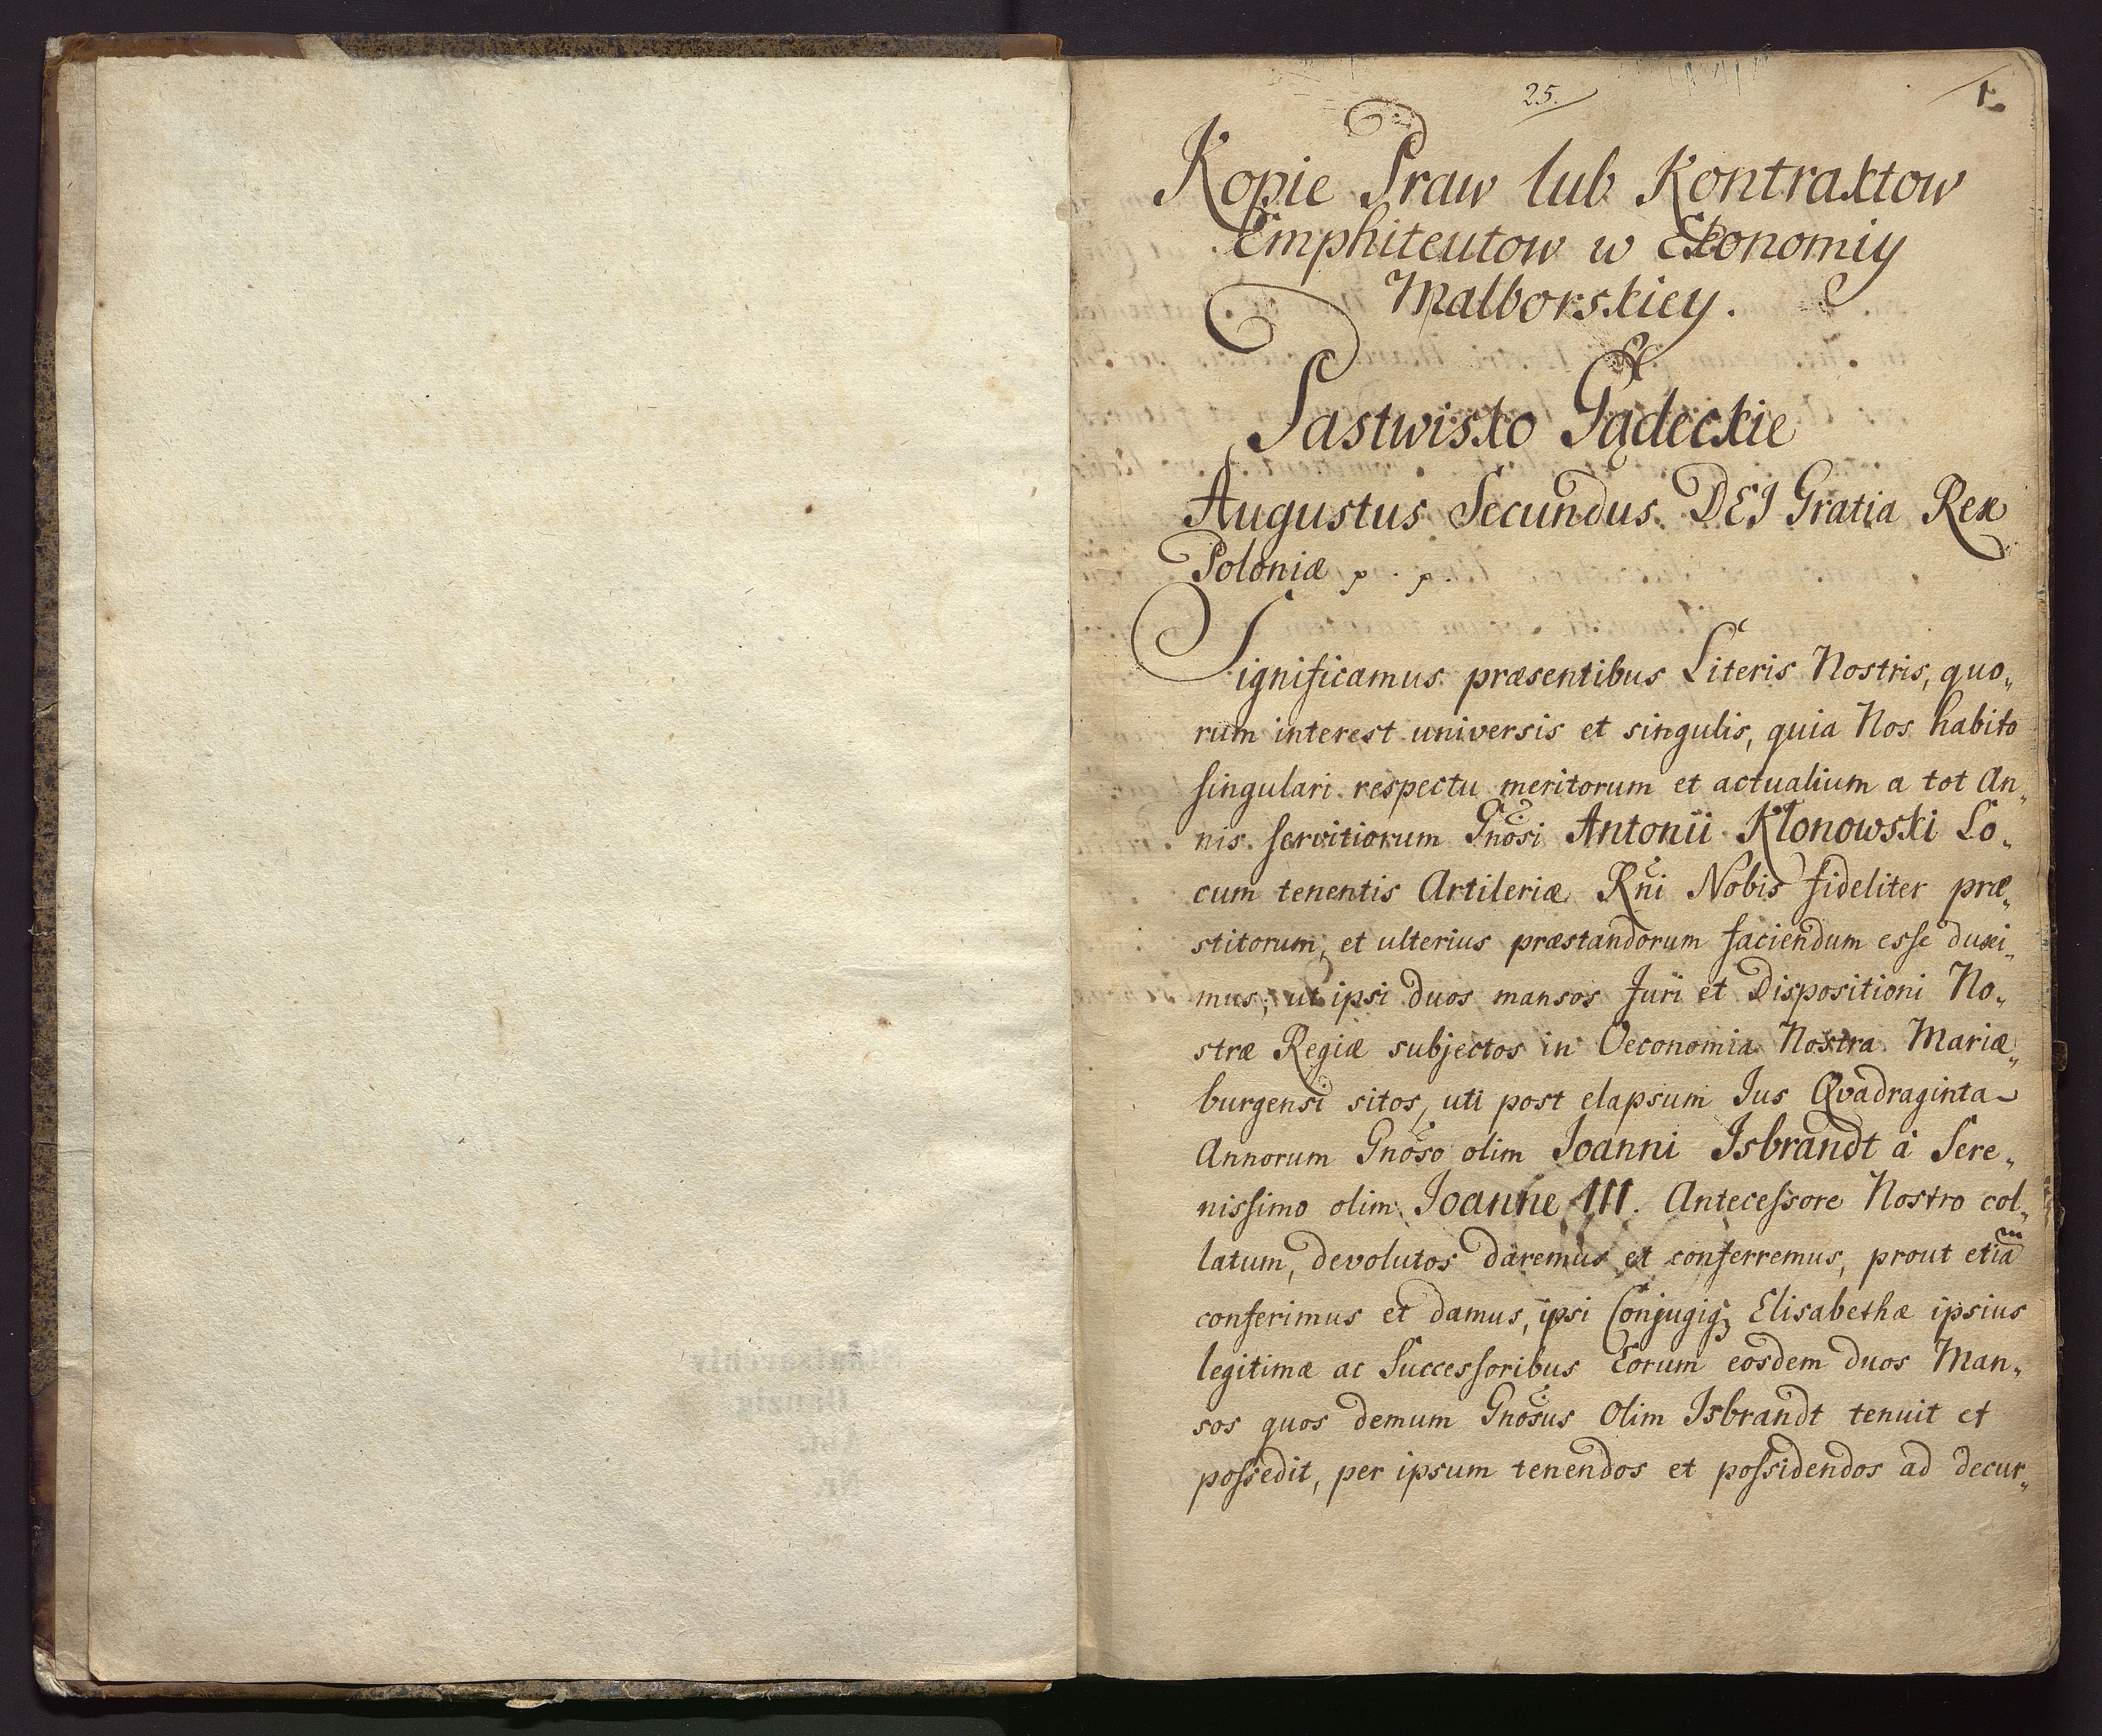 25.
1.
Kopie Praw lub Kontraktow
Emphiteutow w Ekonomiy
Malborskiey.
Pastwisko Gądeckie
Augustus Secundus DEI Gratia Rex
Poloniæ p. p.
Significamus præsentibus Literis Nostris, quo„
rum interest universis et singulis, quia Nos habito
singulari respectu meritorum et actualium a tot An„
nis servitiorum Gnosi Antonii Klonowski Lo„
cum tenentis Artileriæ Rni Nobis fideliter præ„
stitorum, et ulterius præstandorum faciendum esse duxi„
mus, ut ipsi duos mansos Juri et Dispositioni No„
stræ Regiæ subjectos in Oeconomia Nostra Mariæ„
burgensi sitos, uti post elapsum Jus Qvadraginta
Annorum Gnoso olim Joanni Isbrandt â Sere„
nissimo olim Joanne III. Antecessore Nostro col„
latum, devolutos daremus et conferremus, prout etiam
conferimus et damus, ipsi Conjugiq; Elisabethæ ipsius
legitimæ ac Successoribus Eorum eosdem duos Man„
sos quos demum Gnosus Olim Isbrandt tenuit et
possedit, per ipsum tenendos et possidendos ad decur„
Staatsarchiv
Danzig
Abt.
Nr.